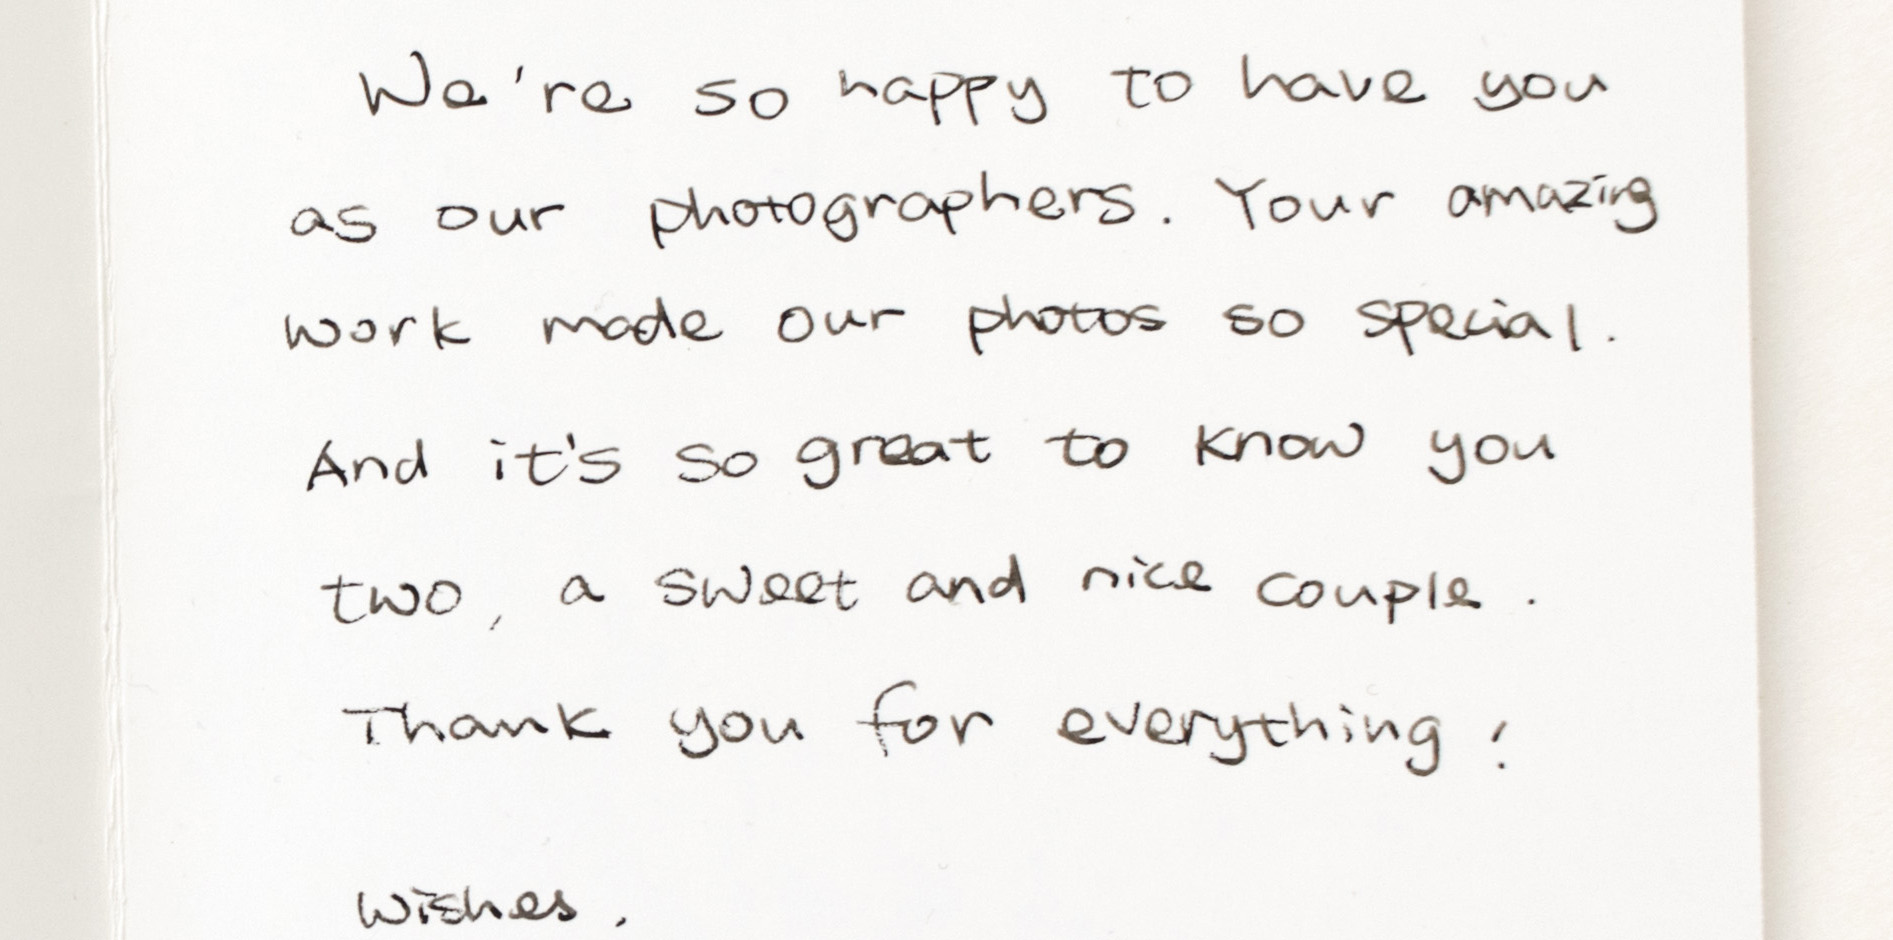 We're so happy to have you
as our photographers. Your amazing
work made our photos so special.
And it's so great to know you
two, a sweet and nice couple.
Thank you for everything!
Wishes,